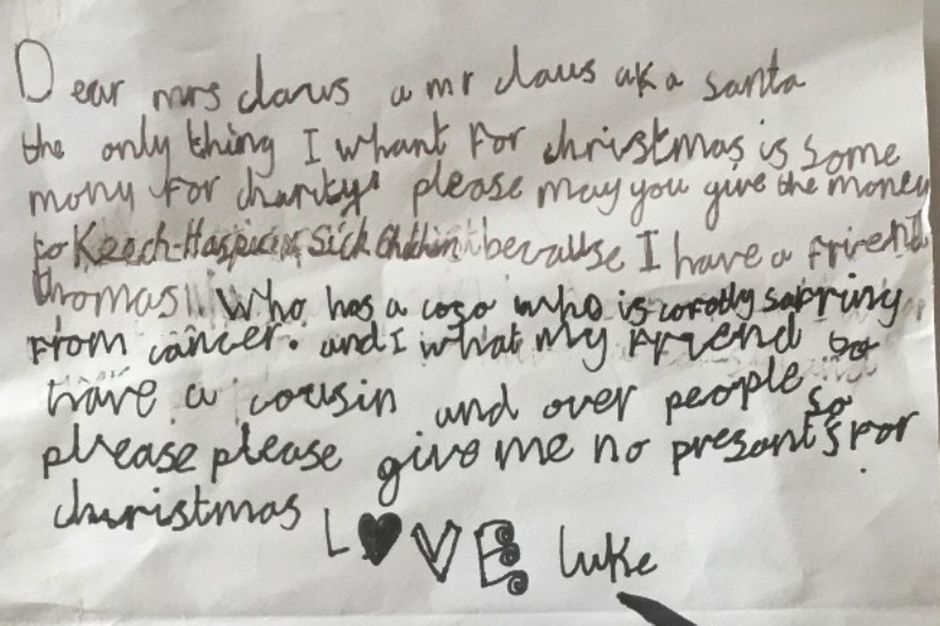 Dear mrs claus a mr claus aka santa
the only thing I whant For christmas is some
mony For charity please may you give the money
to Keech-Hospice Sick because I have a Friend
thomas Who has a who is
From cancer. and I what my Friend to
have a cousin and over people so
please please give me no presants For
christmas LOVE luke